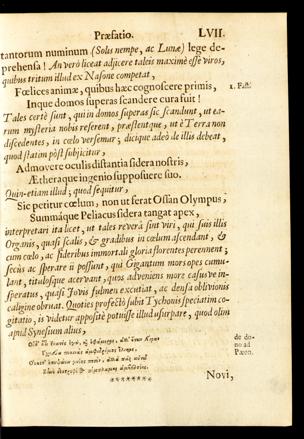 Præfatio. LVII.
tantorum numinum (Solis nempe, ac Lunæ) lege de-
prehensa! An verò liceat adjicere taleis maximè esse viros,
quibus tritum illud ex Nasone competat,
Fœlices animæ, quibus hæc cognoscere primis, 1. Fast:
Inque domos superas scandere cura fuit!
Tales certè sunt, qui in domos superas sic scandunt, ut ea-
rum mysteria nobis referent, præstentque, ut è Terra non
discedentes, in cœlo versemur; dicique adeò de illis debeat,
quod statim pòst subjicitur,
Admovere oculis distantia sidera nostris,
Ætheraque ingenio supposuere suo.
Quin-etiam illud; quod sequitur,
Sic petitur cœlum, non ut ferat Ossan Olympus,
Summáque Peliacus sidera tangat apex,
interpretari ita licet, ut tales reverâ sint viri, qui suis illis
Organis, quasi scalis, & gradibus in cœlum ascendant, &
cum cœlo, ac sideribus immortali gloria florentes perennent;
secùs ac sperare ii possunt, qui Gigantum mors opes cumu-
lant, titulosque acervant, quos adveniens more casuve in-
speratus, quasi Jovis fulmen excutiat, ac densa oblivionis
caligine obruat. Quoties profectò subit Tychonis speciatim co-
gitatio, is videtur appositè potuisse illud usurpare, quod olim
apud Synesium alius,
de do-
no ad
Pæon.
Novi,